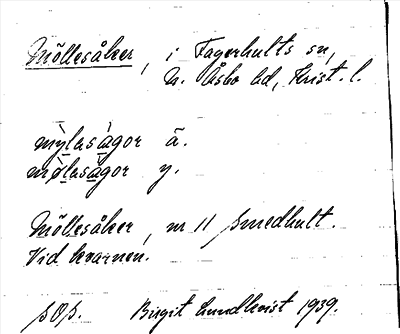 Möllesåker, i Fagerhults sn,
N. Åsbo hd, Krist. l.
mỳlasàgor ä.
mø̀lasàgor y.
Möllesåker, nr 11 Smedhult.
Vid kvarnen.
sOs. Birgit Lundkvist 1939.